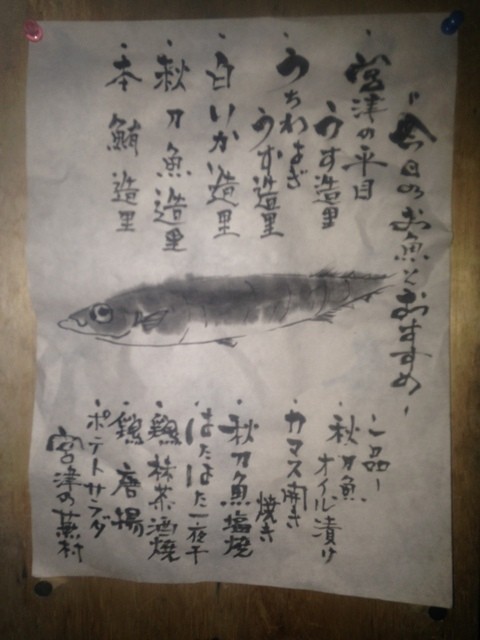 今日のお魚とおすすめ
・宮津の平目
うす造里
・うちわはぎ
うす造里
・白いか造里
・秋刀魚造里
・本鮪造里
一品
・秋刀魚
オイル漬け
・カマス開き
焼き
・秋刀魚塩焼
・はたはた一夜干
・鶏抹茶酒焼
・鶏唐揚
・ポテトサラダ